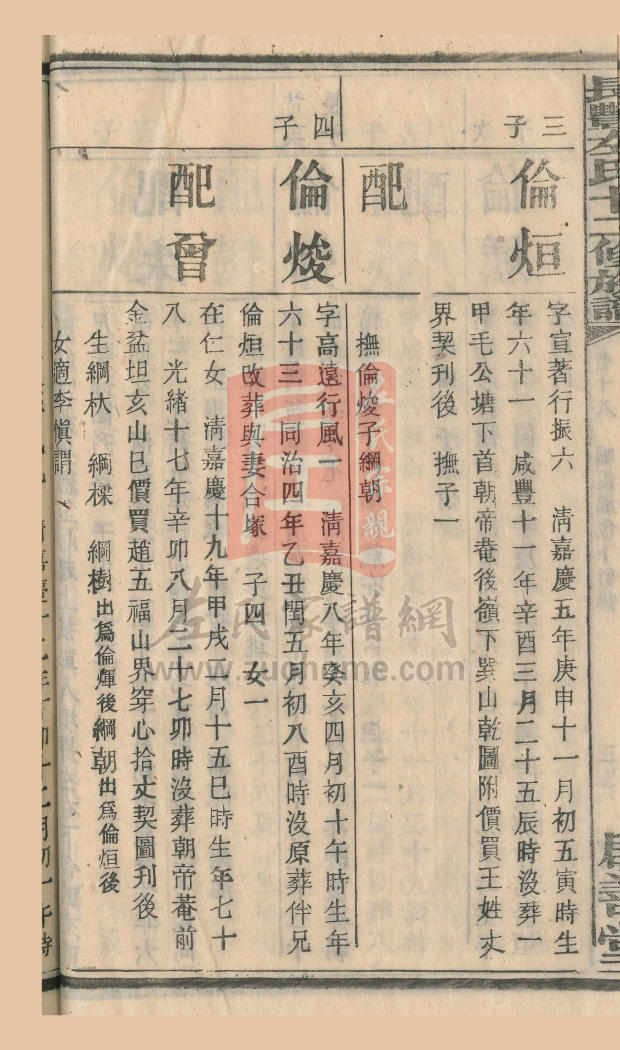 長豐左氏十二修族譜
居善堂
三子
倫烜
字宣著行振六 淸嘉慶五年庚申十一月初五寅時生
年六十一 咸豐十一年辛酉三月二十五辰時沒葬一
甲毛公塘下首朝帝菴後領下巽山乾圖附價買王姓丈
界契刊後 撫子一
配
撫倫焌子綱朝
四子
倫焌
字高遠行風一 淸嘉慶八年癸亥四月初十午時生年
六十三 同治四年乙丑閏五月初八酉時沒原葬伴兄
倫烜改葬與妻合塚 子四 女一
配曾
在仁女 淸嘉慶十九年甲戌二月十五巳時生年七十
八 光緒十七年辛卯八月二十七卯時沒葬朝帝菴前
金盆坦亥山巳價買趙五福山界穿心拾丈契圖刊後
生綱杕 綱樑 綱樹出爲倫煇後綱朝出爲倫烜後
女適李愼謂
午時
左氏宗親
左氏家譜網
www.zuohome.com